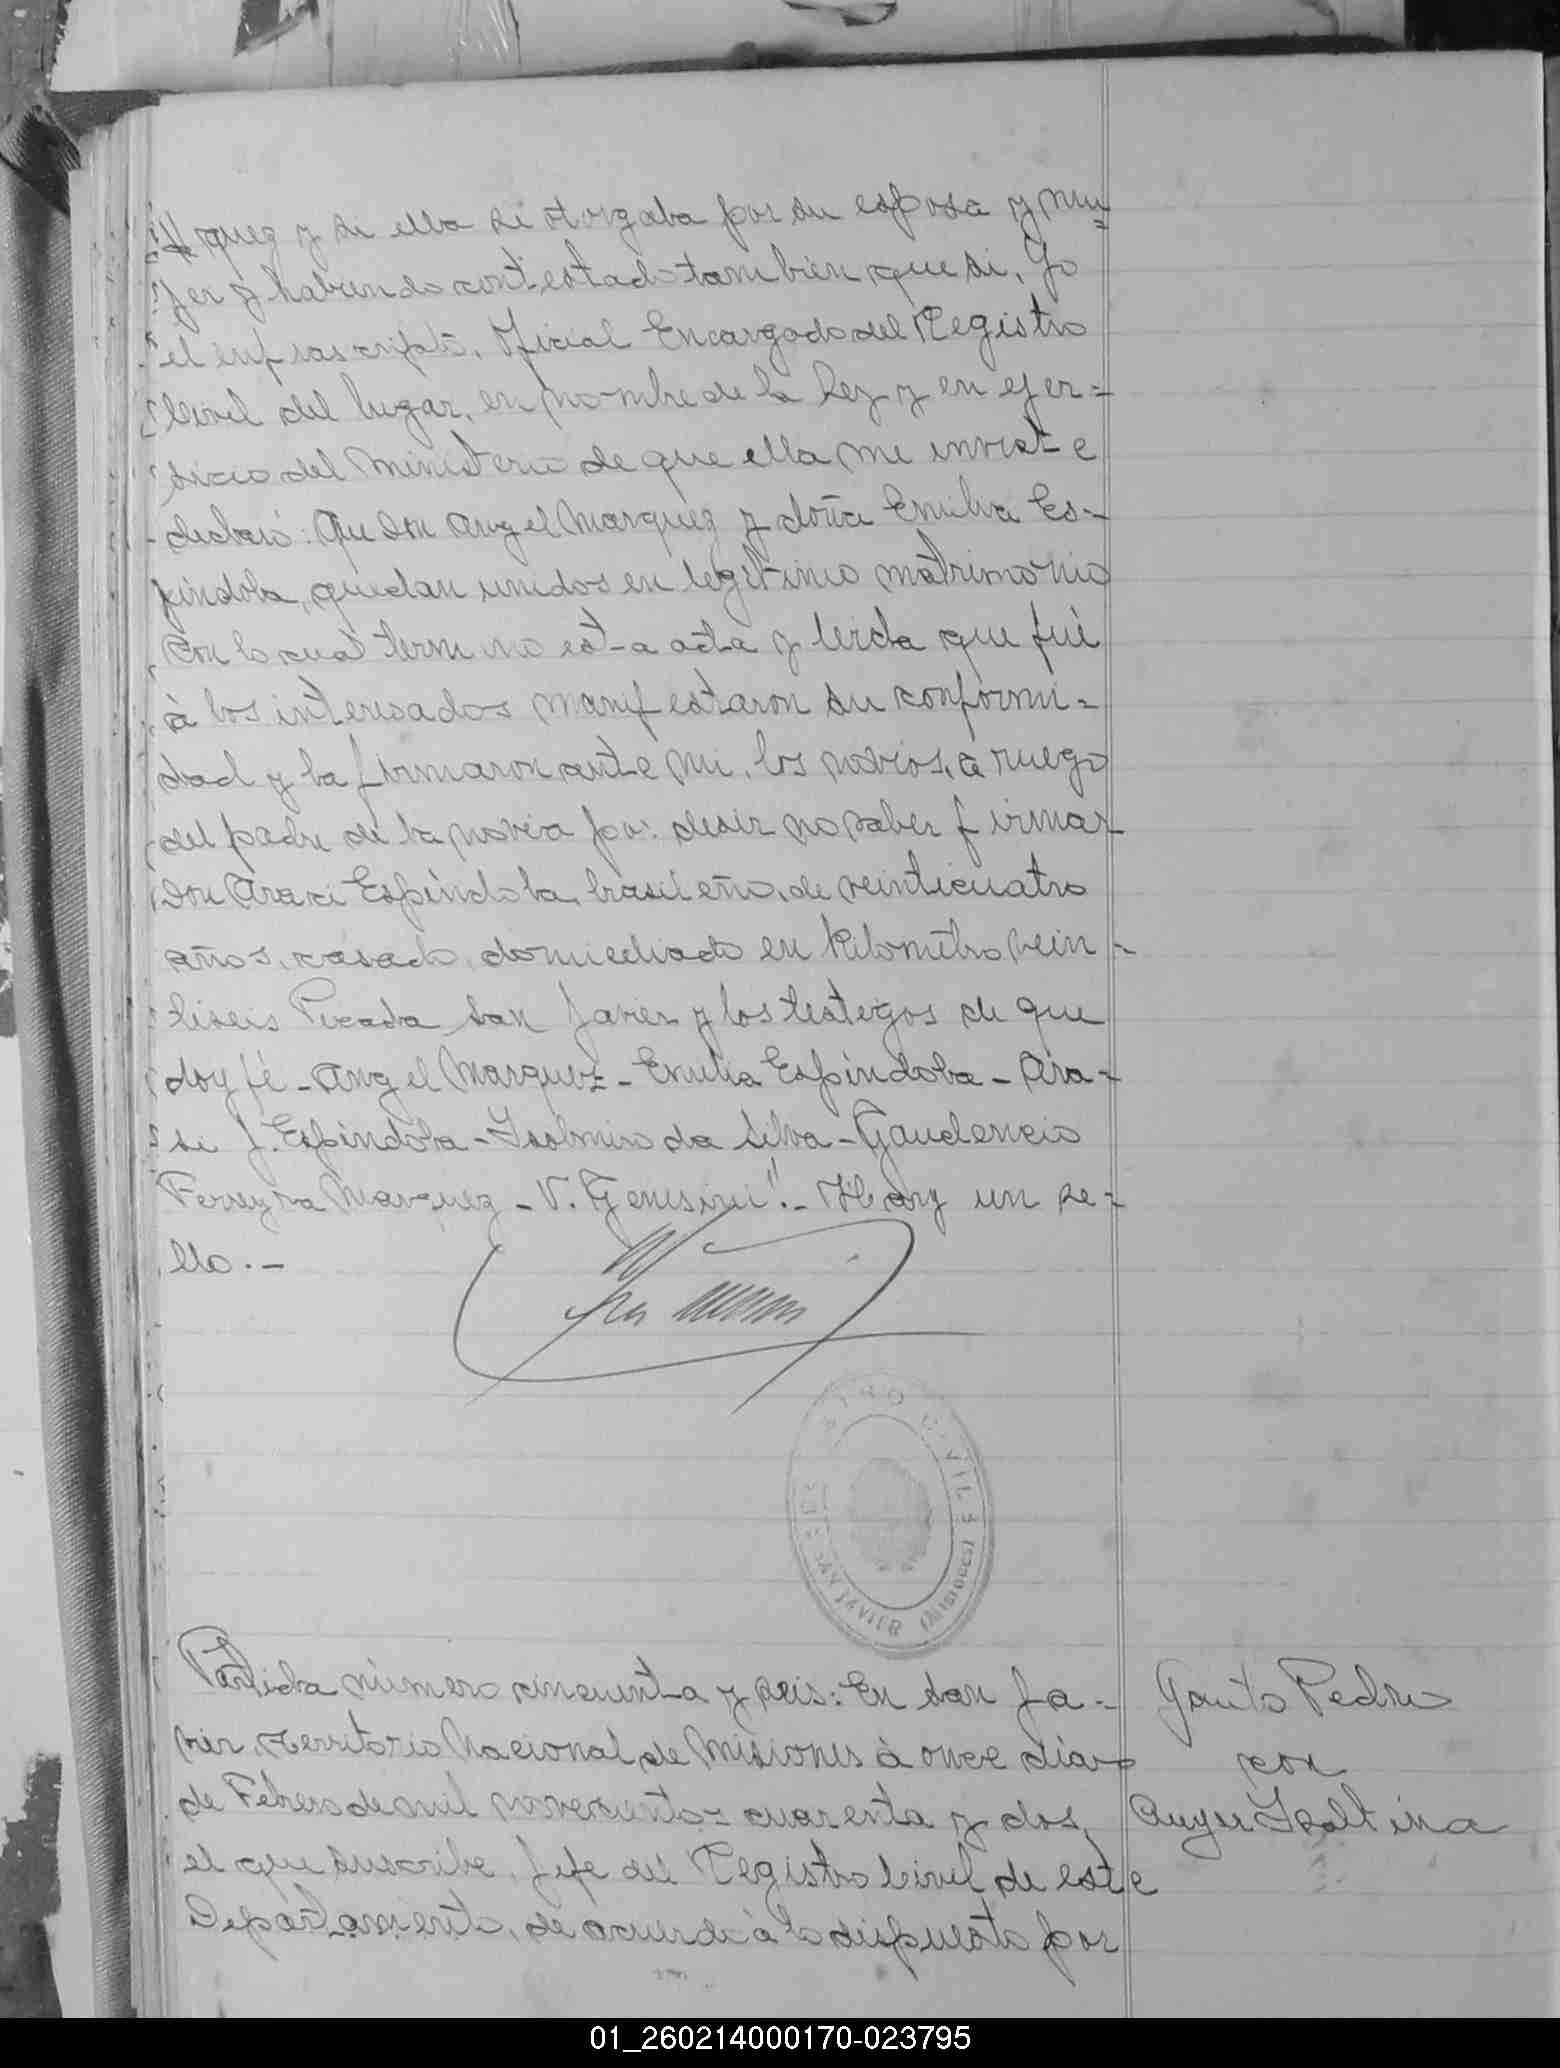 quez y si ella se otorgaba por su esposa y mu=
jer y habiendo contestado tambien que si, Yo
el infrascripto, Oficial Encargado del Registro
Civil del lugar, en nombre de la Ley y en ejer=
sicio del Ministerio de que ella me inviste
declaro: Que Don Angel Marquez y doña Emilia Es-
pindola, quedan unidos en legitimo matrimonio
con lo cual termino esta acta y leida que fué
à los interesados manifestaron su conformi=
dad y la firmaron ante mi, los novios, a ruego
del padre de la novia por desir no saber firmar
Don Araci Espindola, brasileño, de veinticuatro
años, casado, domiciliado en Kilometro vein-
tiseis Picada San Javier y los testigos de que
doy fé - Angel Marquez - Emilia Espindola - Ara-
si J. Espindola - Isolmiro da Silva - Gaudencio
Ferreyra Marquez - V. Genesini". - Hay un se-
llo. -
REGISTRO CIVIL
SAN JAVIER (MISIONES)
Partida número cincuenta y seis: En San Ja-
vier, Territorio Nacional de Misiones à once dias
de Febrero de mil novecientos cuarenta y dos,
el que suscribe, Jefe del Registro Civil de este
Departamento, de acuerdo à lo dispuesto por
Gauto Pedro
con
Isoltina
01_260214000170-023795